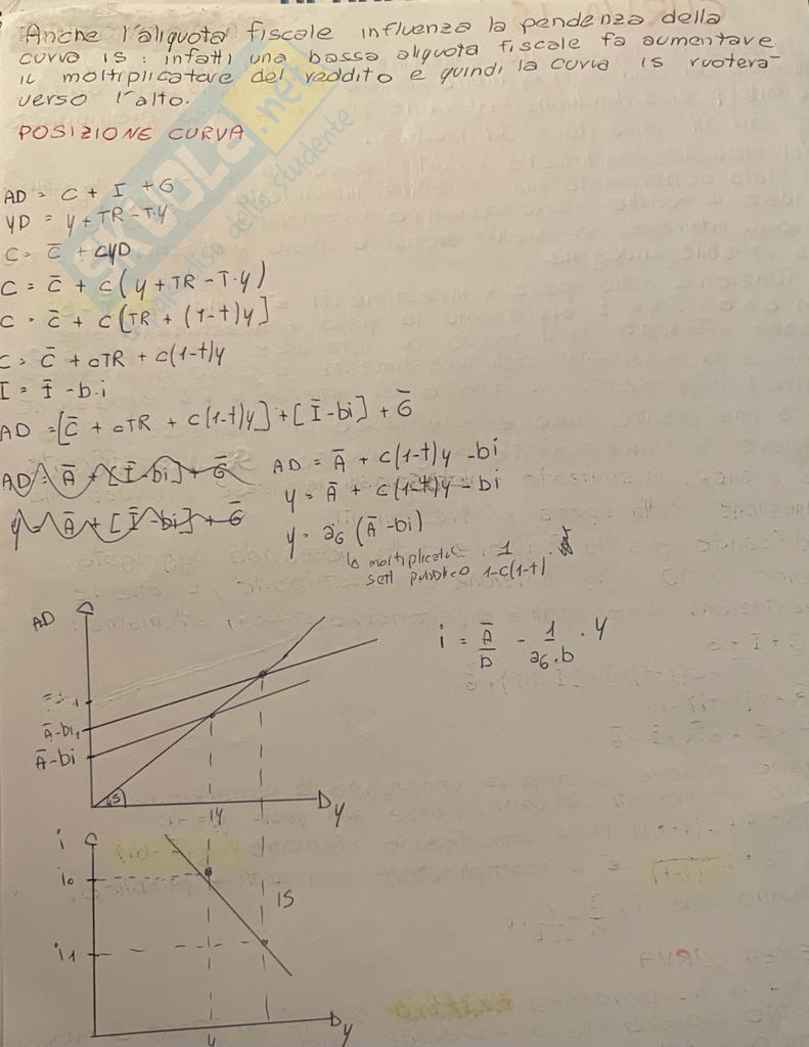 Anche l'aliquota fiscale influenza la pendenza della
curva IS: infatti una bassa aliquota fiscale fa aumentare
il moltiplicatore del reddito e quindi la curva IS ruoterà
verso l'alto.
POSIZIONE CURVA
AD = C + I + G
YD = y + TR - T·y
C = C̄ + cYD
C = C̄ + c(y + TR - T·y)
C = C̄ + c[TR + (1-t)y]
C = C̄ + cTR + c(1-t)y
I = Ī - b·i
AD = [C̄ + cTR + c(1-t)y] + [Ī - bi] + Ḡ
AD = Ā + [Ī - bi] + Ḡ
y = Ā + [Ī - bi] + Ḡ
AD = Ā + c(1-t)y - bi
y = Ā + c(1-t)y - bi
y = aG (Ā - bi)
moltiplicatore 1
sett pubblico 1-c(1-t)
i = Ā/b - 1/aG·b · y
AD
Ā-bi1
Ā-bi
45
y
i
i0
i1
IS
y
SKUOLA.net
dello studente